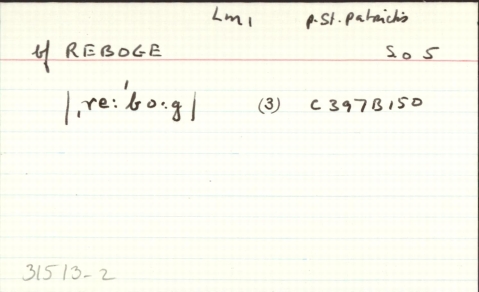 Lm1 p. St. Patrick's
bf REBOGE S05
|ˌre:ˈbo:g| (3) C397B150
31513-2